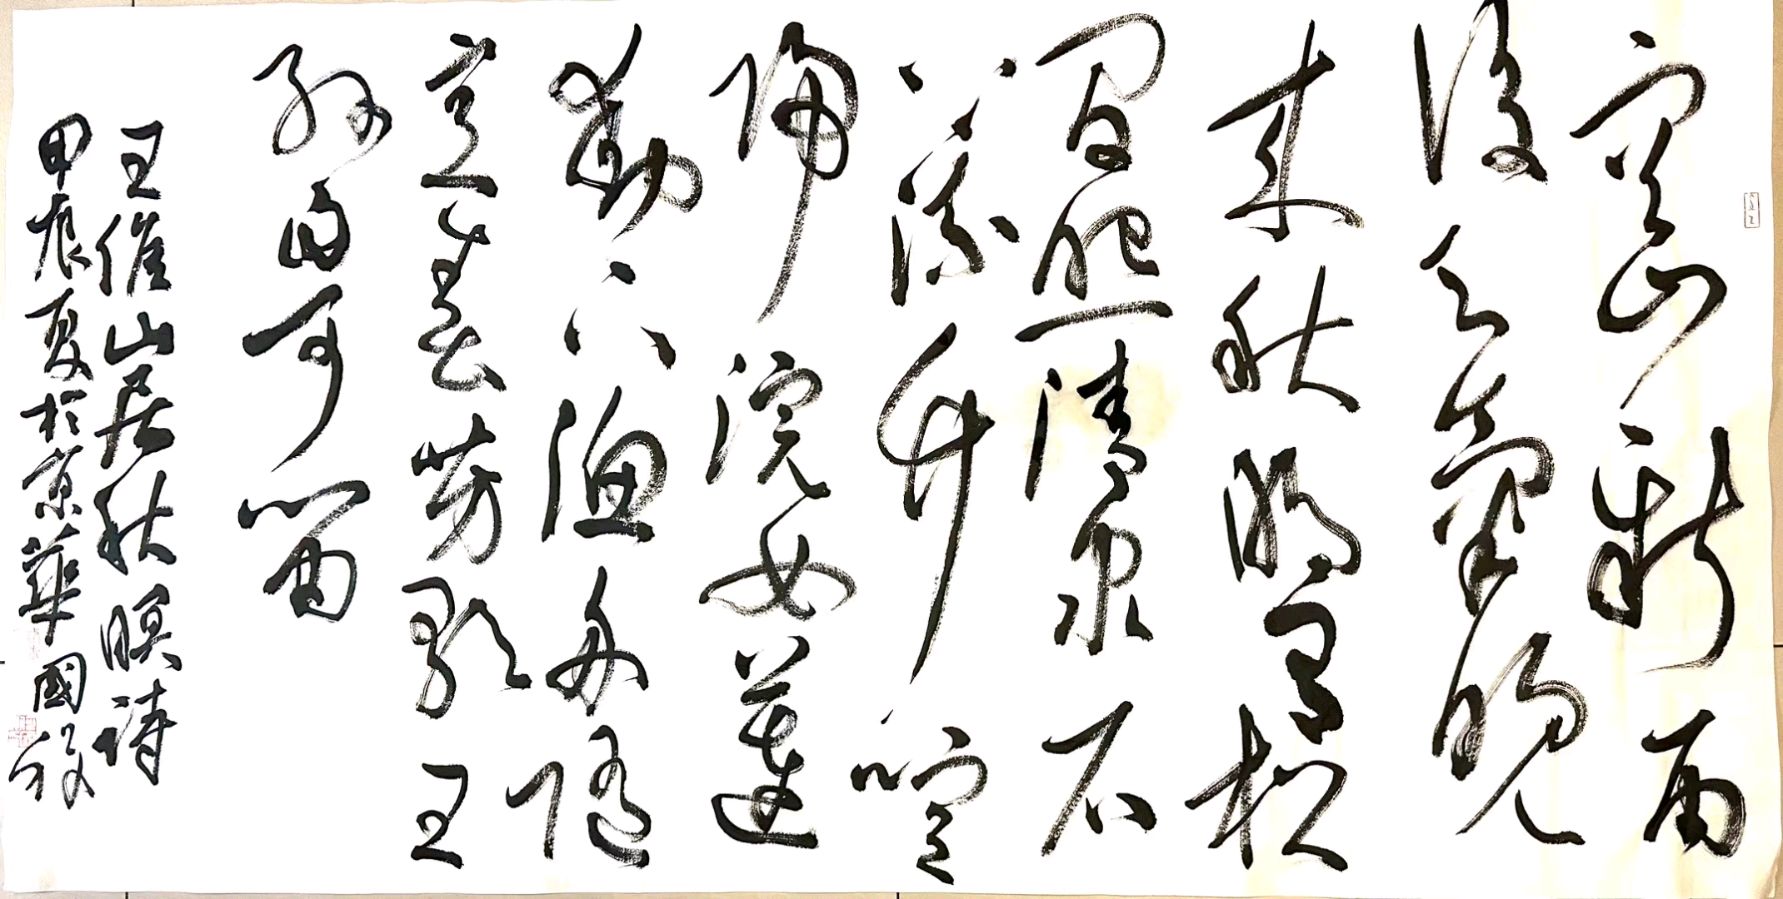 空山新雨
後天氣晚
来秋明月松
間照清泉石
上流竹喧
歸浣女蓮
動下漁舟隨
意春芳歇王
孫自可留
王維山居秋暝詩
甲辰夏於京華國